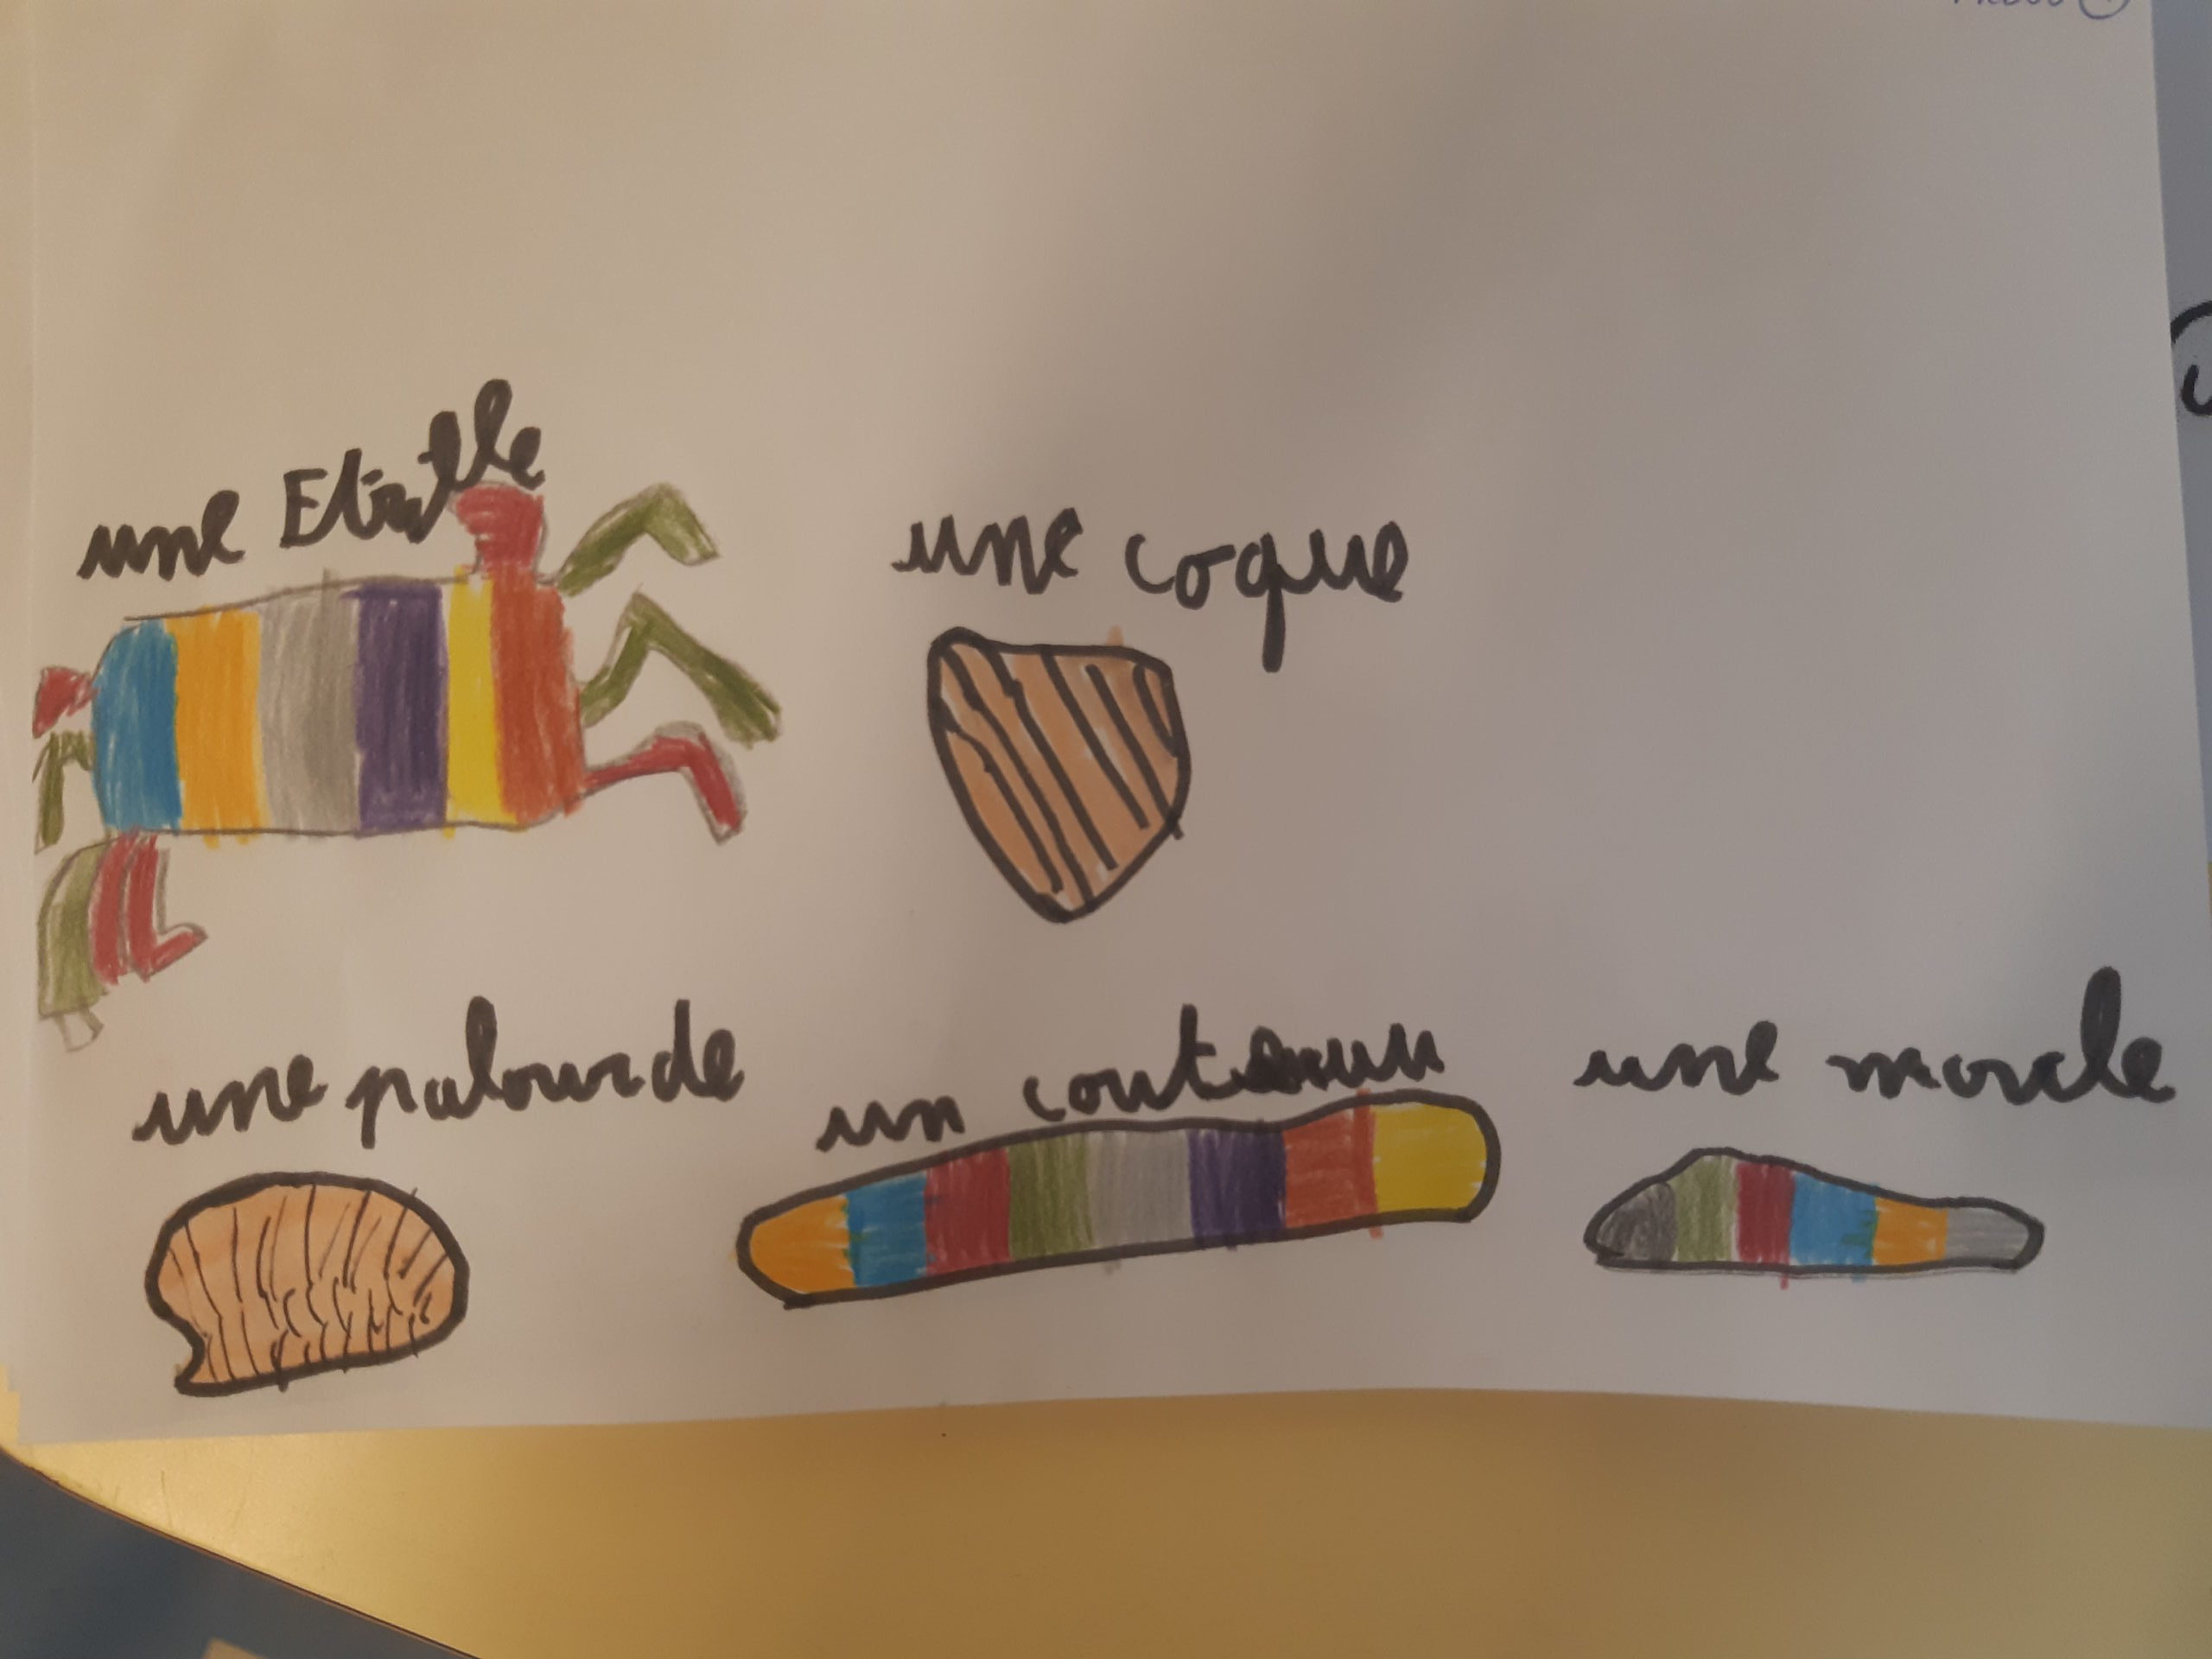 une Etrille
une coque
une palourde
un couteau
une moule